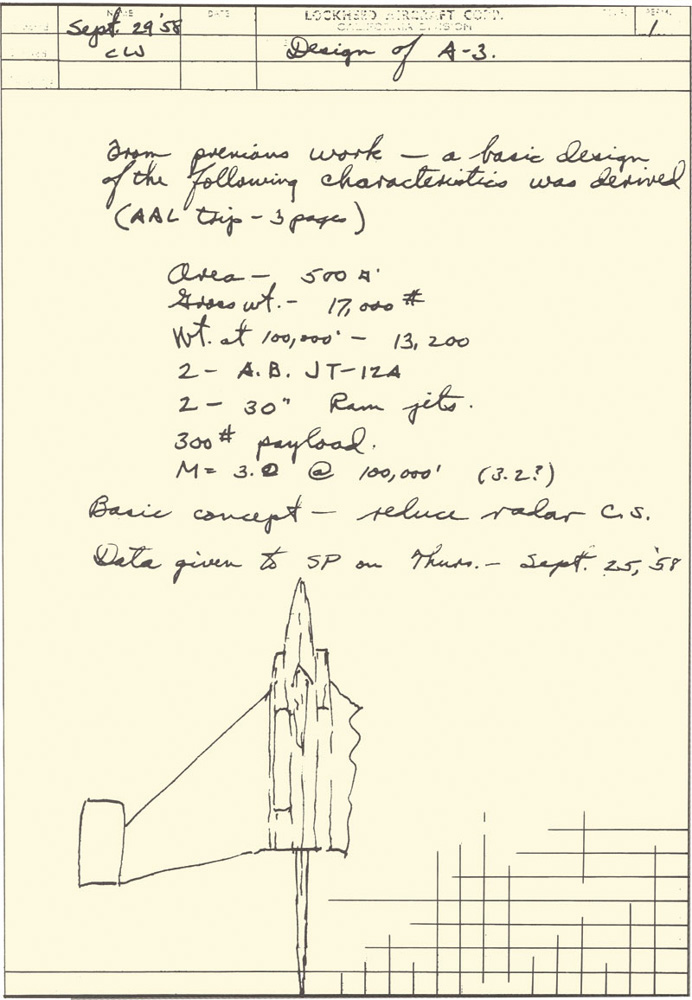 NAME DATE LOCKHEED AIRCRAFT CORP. PERM.
CALIFORNIA DIVISION
Sept. 29 '58 1
CW Design of A-3.
From previous work — a basic design
of the following characteristics was derived
(AAL trip - 3 pages)
Area — 500 □'
Gross wt. - 17,000 #
Wt. at 100,000' - 13,200
2 - A.B. JT-12A
2 - 30" Ram jets.
300 # payload.
M = 3.0 @ 100,000' (3.2?)
Basic concept — reduce radar c.s.
Data given to SP on Thurs. - Sept. 25, '58